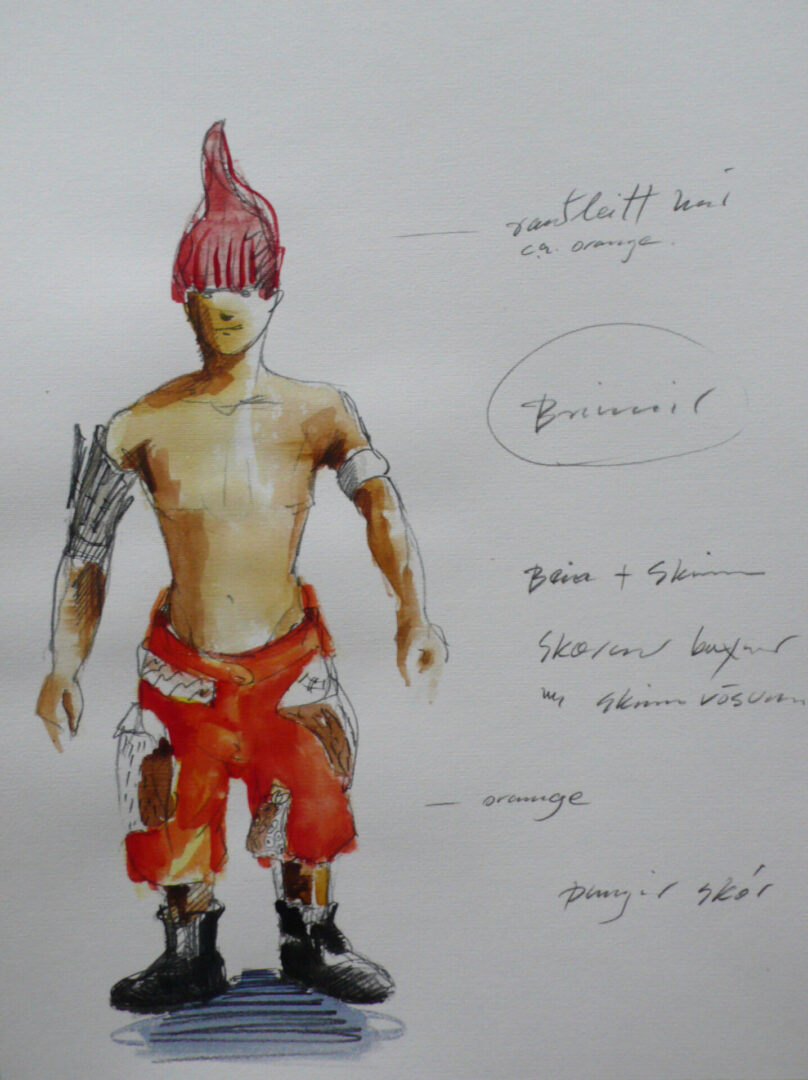 rauðleitt hár
c.a. orange.
Brimir
+ Skinn
Skornar buxur
m/ skinn vösum
orange
Þungir skór